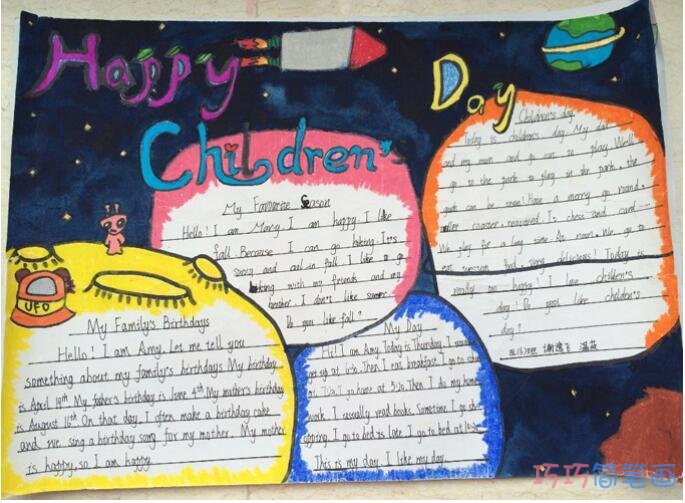 Happy
Children's
Day
Children's day
Today is children's day. My dad
and my mum and go out to play. Well
go to the park to play in the park. the
park can be more! Have a merry go round.
We play for a long time. At noon. We go to
food delicious! Today is
really too happy! I love children's
day! Do you like children's
day?
My Favourite Season
Hello! I am Mary. I am happy. I like
fall. Because I can go hiking. It's
and cool in fall. I like to go
with my friends and my
brother. I don't like summer.
Do you like fall?
UFO
My Family's Birthdays
Hello! I am Amy. Let me tell you
something about my family's birthdays. My birthday
is April 19th. My father's birthday is June 4th. My mother's birthday
is August 16th. On that day, I often make a birthday cake
and we sing a birthday song for my mother. My mother
is happy, so I am happy.
My Day
Hi! I am Amy. Today is Thursday. I
get up at Then I eat breakfast. I go to school
I go home at 5:20. Then I do my home
work. I usually read books. Sometime I go sh-
opping. I go to bed is late. I go to bed at
This is my day. I like my day.
巧巧简笔画